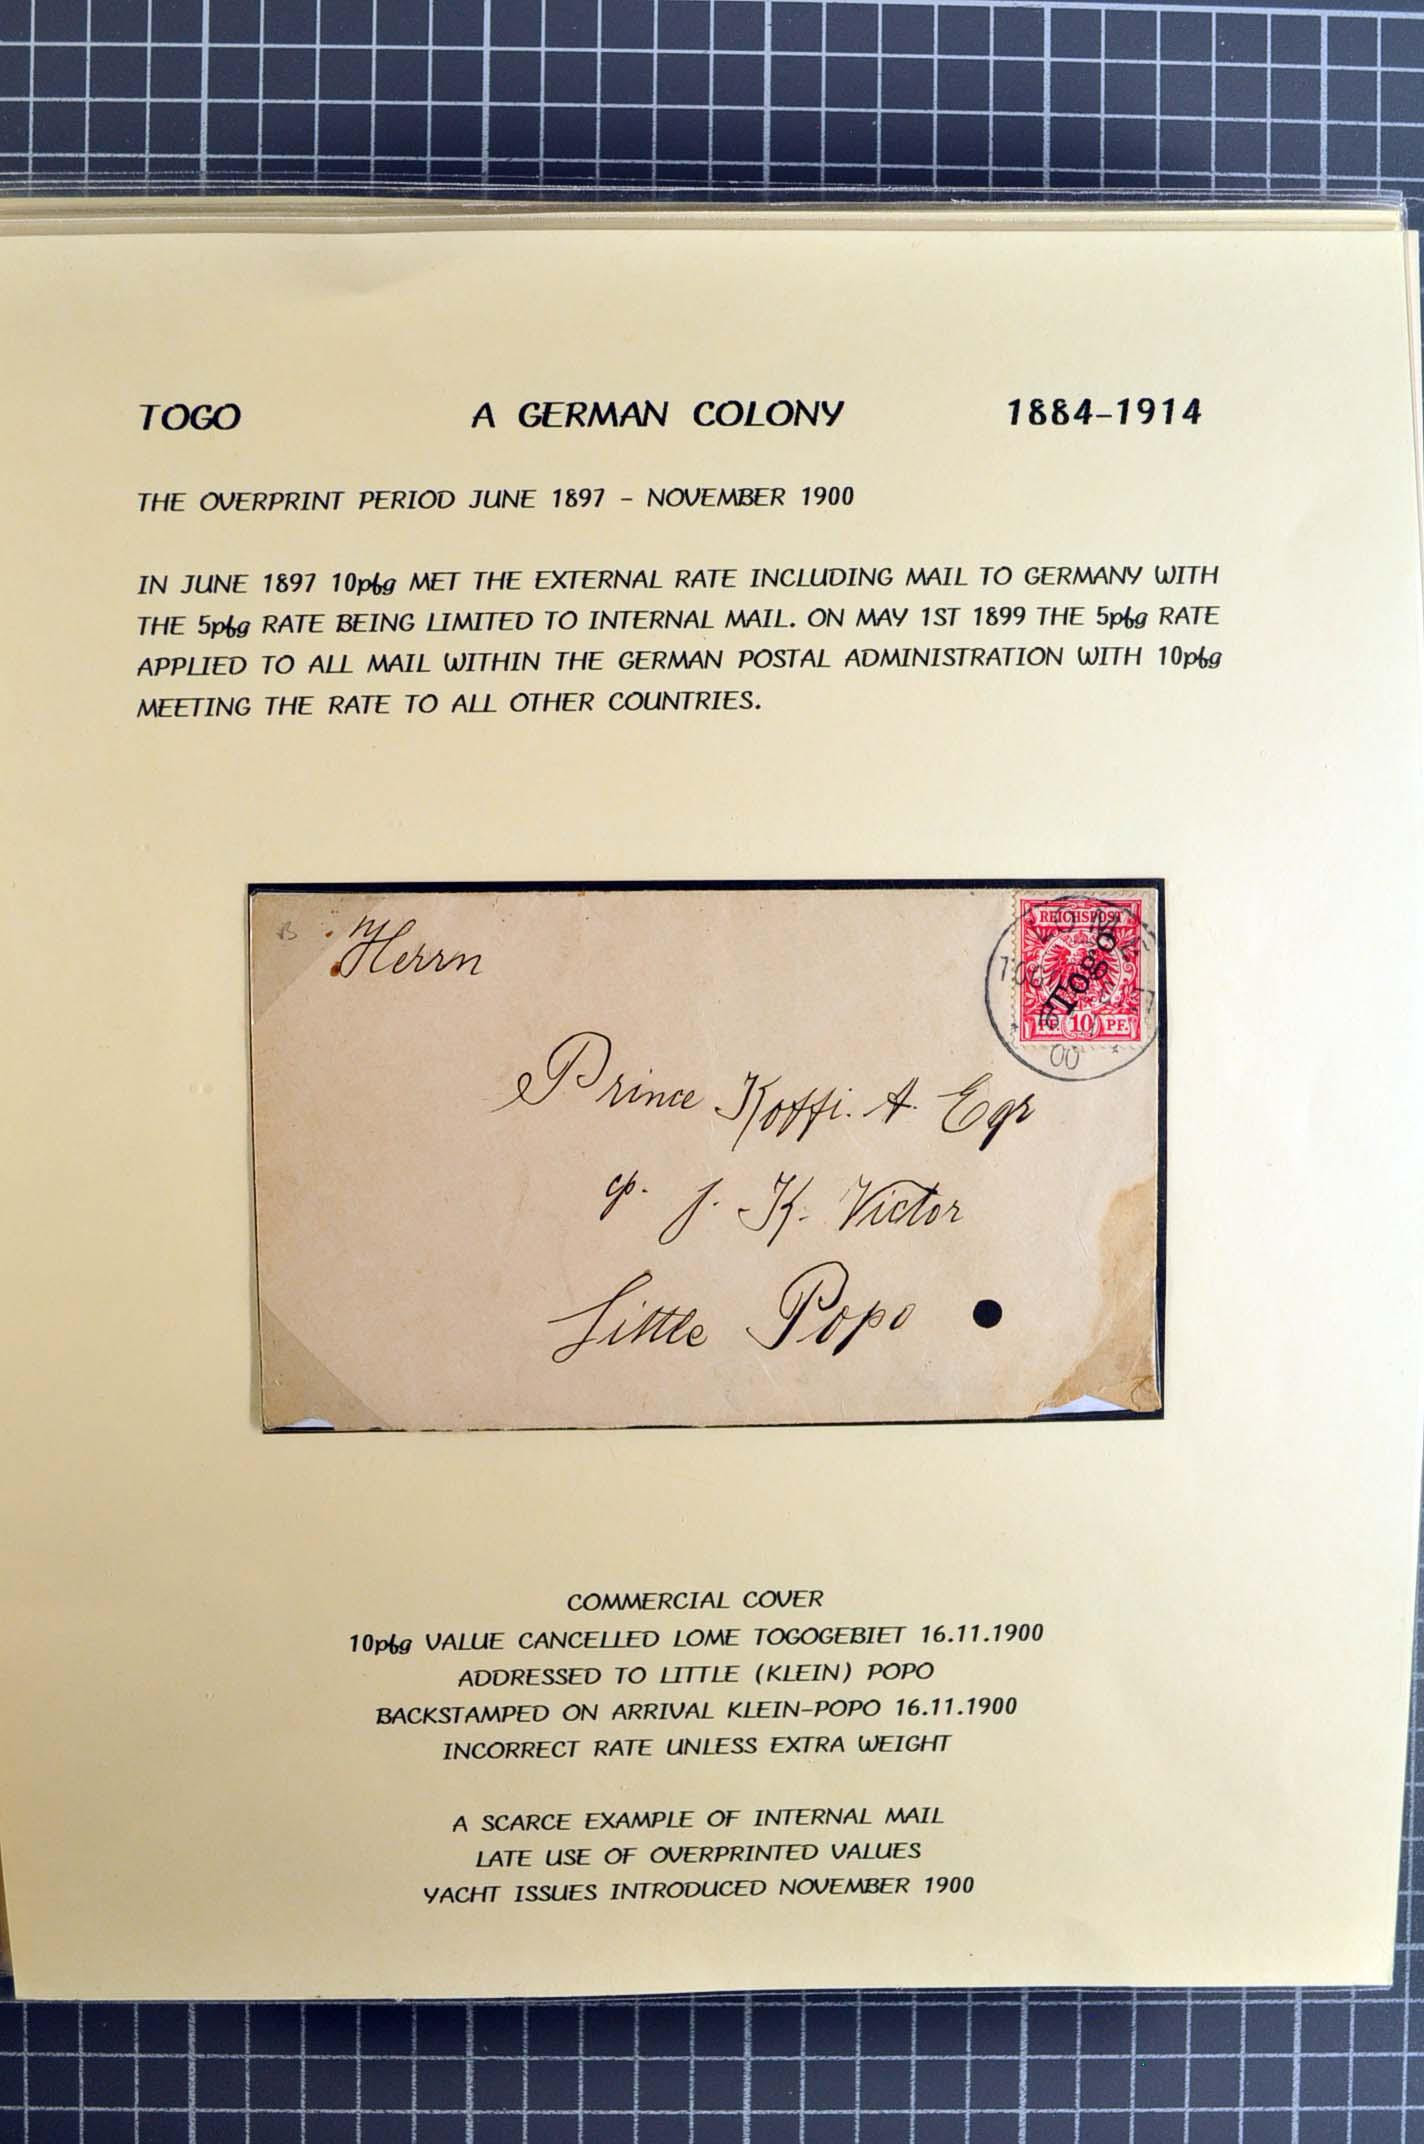 TOGO A GERMAN COLONY 1884-1914
THE OVERPRINT PERIOD JUNE 1897 - NOVEMBER 1900
IN JUNE 1897 10pfg MET THE EXTERNAL RATE INCLUDING MAIL TO GERMANY WITH
THE 5pfg RATE BEING LIMITED TO INTERNAL MAIL. ON MAY 1ST 1899 THE 5pfg RATE
APPLIED TO ALL MAIL WITHIN THE GERMAN POSTAL ADMINISTRATION WITH 10pfg
MEETING THE RATE TO ALL OTHER COUNTRIES.
REICHSPOST
Togo
PF. 10 PF.
00
Herrn
Prince Koffi. A. Eqr
J. K. Victor
Little Popo
COMMERCIAL COVER
10pfg VALUE CANCELLED LOME TOGOGEBIET 16.11.1900
ADDRESSED TO LITTLE (KLEIN) POPO
BACKSTAMPED ON ARRIVAL KLEIN-POPO 16.11.1900
INCORRECT RATE UNLESS EXTRA WEIGHT
A SCARCE EXAMPLE OF INTERNAL MAIL
LATE USE OF OVERPRINTED VALUES
YACHT ISSUES INTRODUCED NOVEMBER 1900